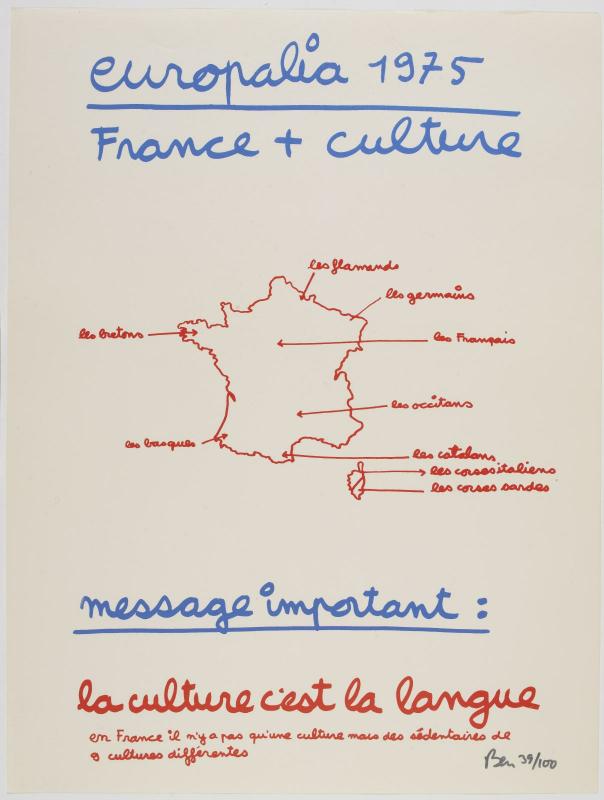 europalia 1975
France + culture
les flamands
les germains
les bretons
les Français
les occitans
les basques
les catalans
les corses italiens
les corses sardes
message important :
la culture c'est la langue
en France il n'y a pas qu'une culture mais des sédentaires de
9 cultures différentes
Ben 39/100